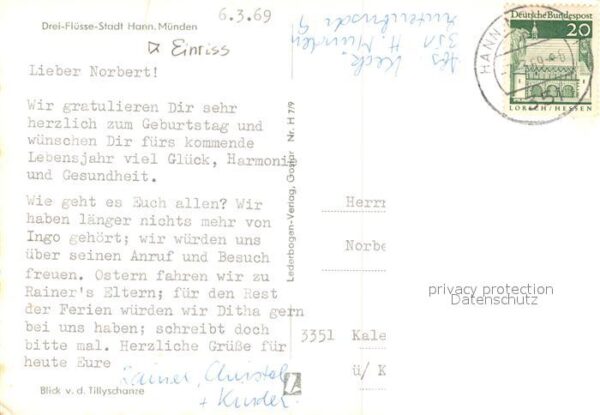 6.3.69
Drei-Flüsse-Stadt Hann. Münden
Einriss
Lieber Norbert!
Wir gratulieren Dir sehr
herzlich zum Geburtstag und
wünschen Dir fürs kommende
Lebensjahr viel Glück, Harmonie
und Gesundheit.
Wie geht es Euch allen? Wir
haben länger nichts mehr von
Ingo gehört; wir würden uns
über seinen Anruf und Besuch
freuen. Ostern fahren wir zu
Rainer's Eltern; für den Rest
der Ferien würden wir Ditha gern
bei uns haben; schreibt doch
bitte mal. Herzliche Grüße für
heute Eure
Rainer, Christel
+ Kinder
Blick v. d. Tillyschanze
Lederbogen-Verlag, Goslar Nr. H 7/9
Abs. Keck
351 H. Münden
Deutsche Bundespost
20
LORSCH/HESSEN
HANN
Herrn
Norbe
3351 Kale
ü/ K
privacy protection
Datenschutz